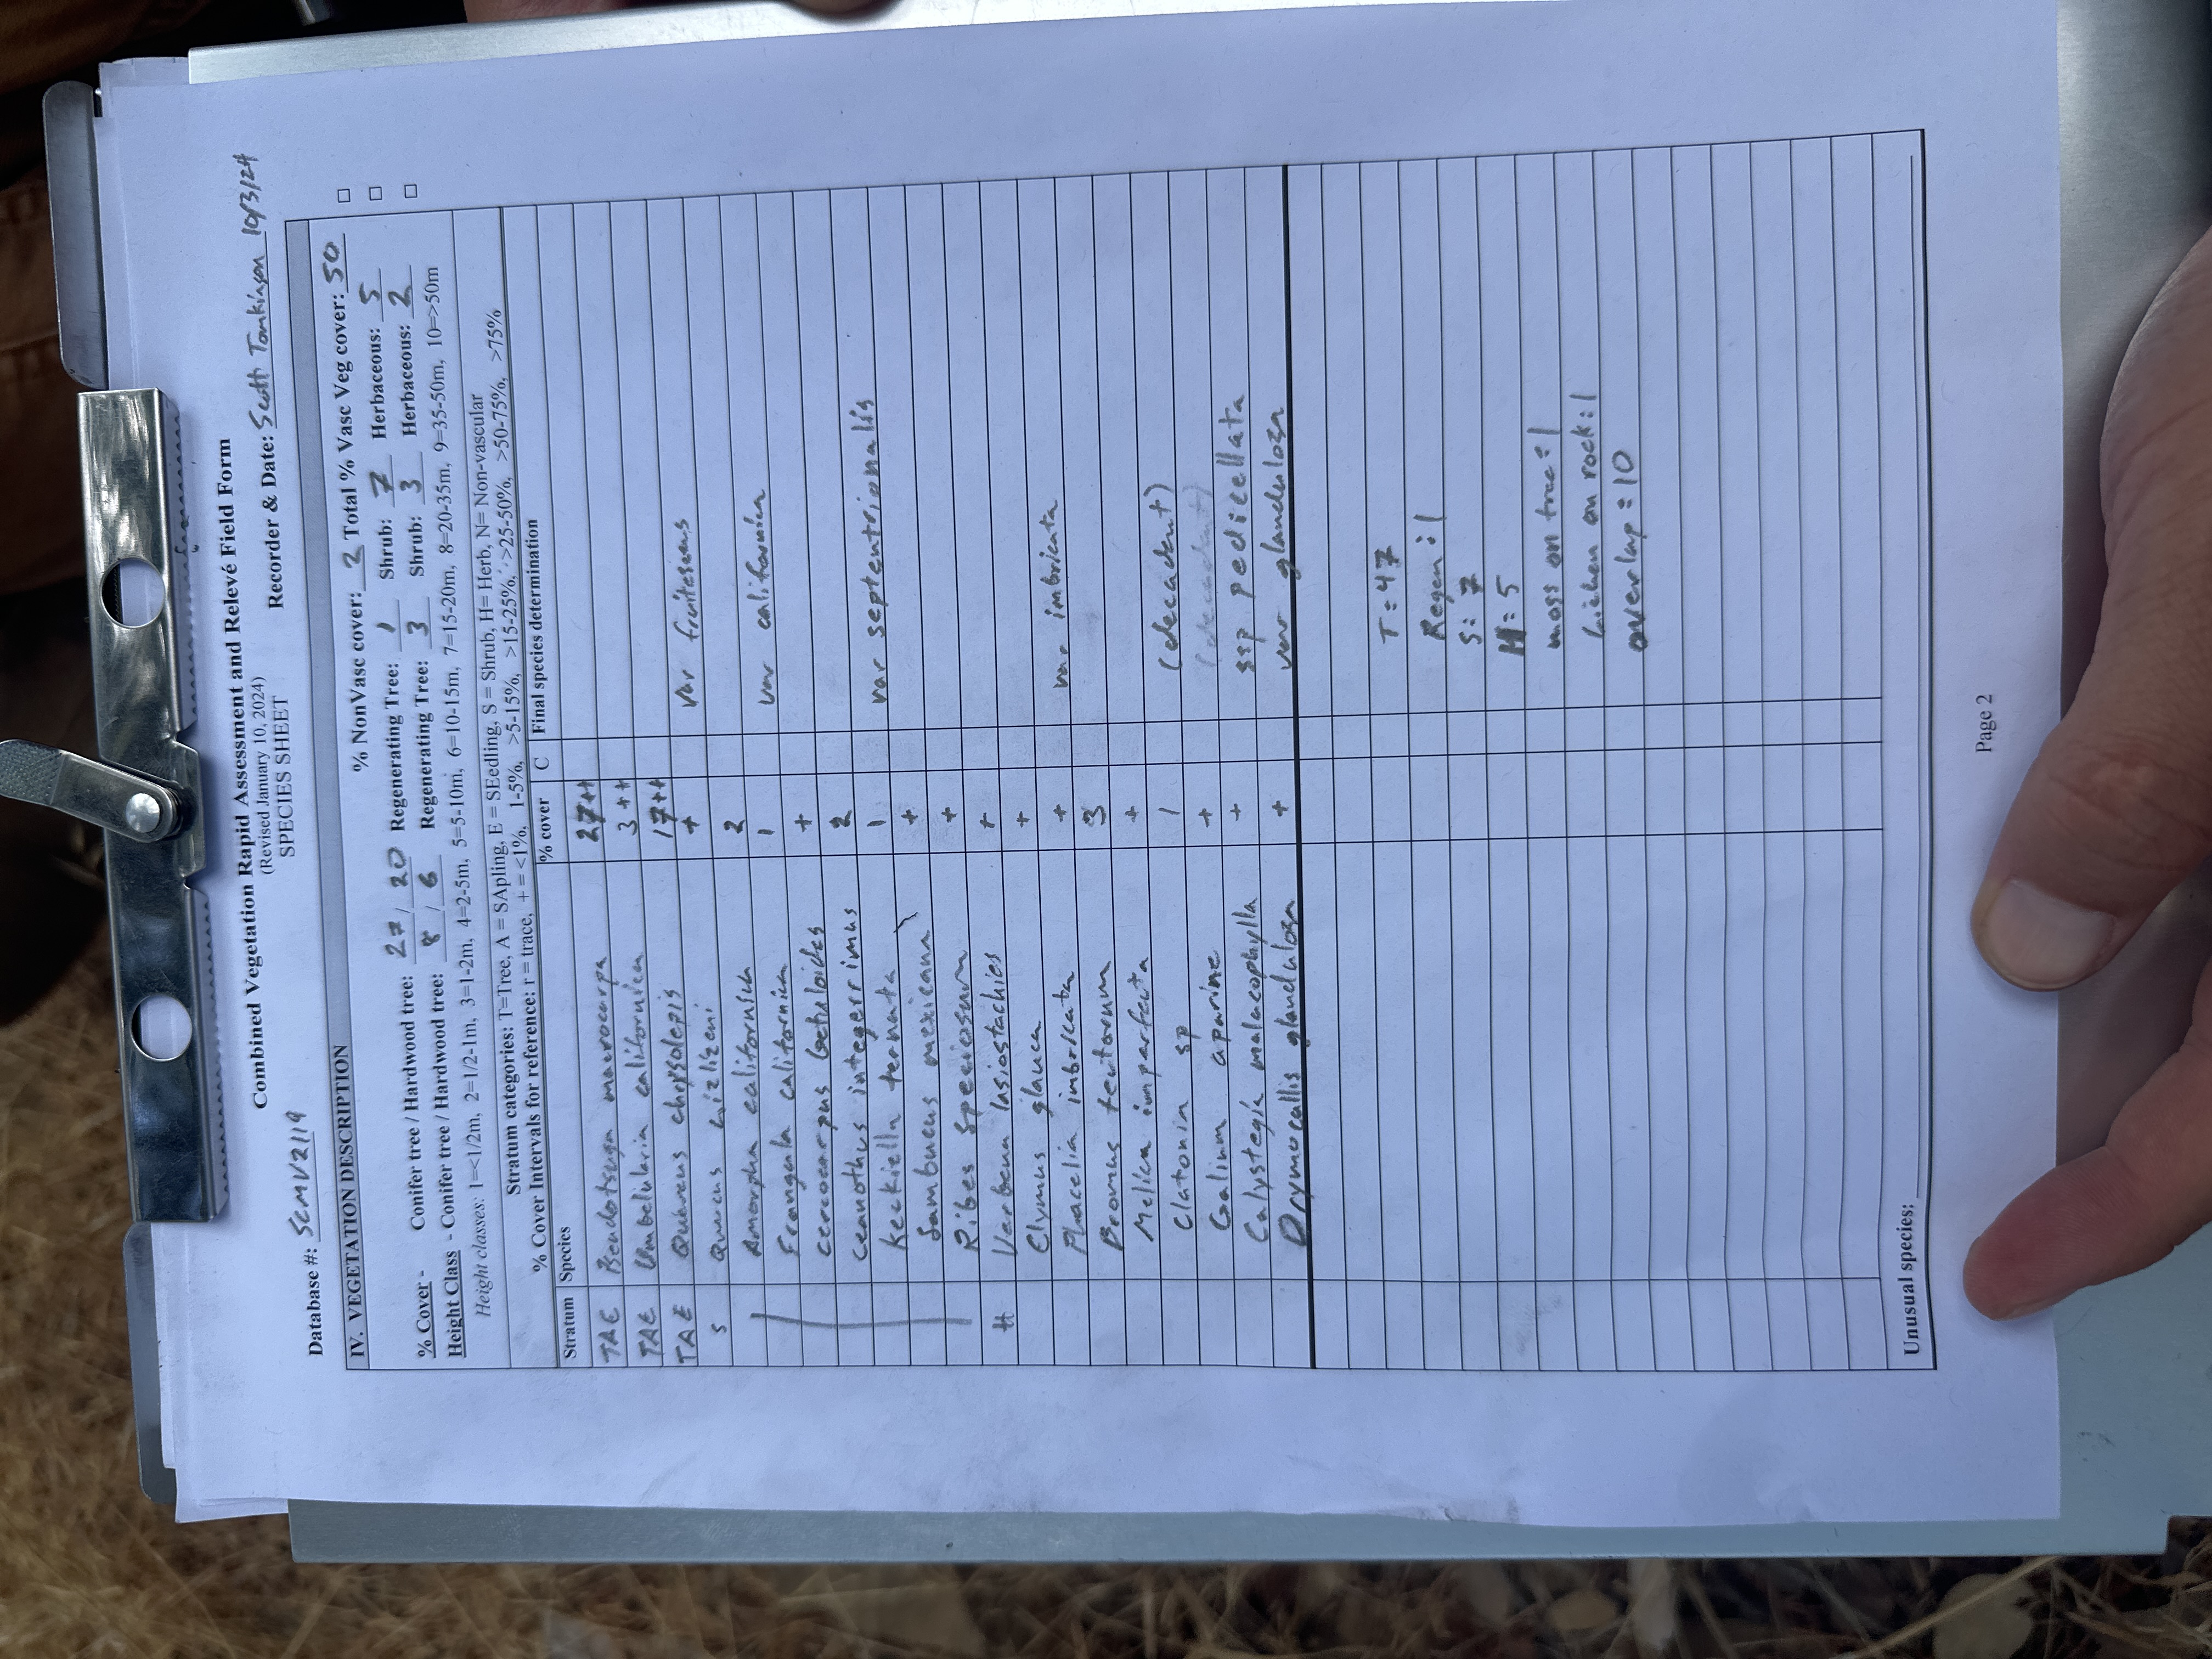 Combined Vegetation Rapid Assessment and Relevé Field Form
(Revised January 10, 2024)
SPECIES SHEET
Database #: SCMV2119 Recorder & Date: Scott Tomkinson 10/3/24
IV. VEGETATION DESCRIPTION
% NonVasc cover: 2 Total % Vasc Veg cover: 50
% Cover - Conifer tree / Hardwood tree: 27 / 20 Regenerating Tree: 1 Shrub: 7 Herbaceous: 5
Height Class - Conifer tree / Hardwood tree: 8 / 6 Regenerating Tree: 3 Shrub: 3 Herbaceous: 2
Height classes: 1=<1/2m, 2=1/2-1m, 3=1-2m, 4=2-5m, 5=5-10m, 6=10-15m, 7=15-20m, 8=20-35m, 9=35-50m, 10=>50m
Stratum categories: T=Tree, A = SApling, E = SEedling, S = Shrub, H= Herb, N= Non-vascular
% Cover Intervals for reference: r = trace, + = <1%, 1-5%, >5-15%, >15-25%, >25-50%, >50-75%, >75%
Stratum Species % cover C Final species determination
TAE Pseudotsuga macrocarpa 27++
TAE Umbelularia californica 3++
TAE Quercus chrysolepis 17++
S Quercus wizlizeni + var fruitescens
Amorpha californica 2
Frangula californica 1 var californica
cercocarpus betuloides +
Ceanothus integerrimus 2
Keckiella ternata 1 var septentrionalis
Sambucus mexicana +
Ribes speciosum +
H Verbena lasiostachies r
Elymus glauca +
Phacelia imbricata + var imbricata
Bromus tectorum 3
Melica imperfecta +
Clatonia sp 1 (decadent)
Galium aparine + (decadent)
Calystegia malacophylla + ssp pedicellata
Drymocallis glandulosa + var glandulosa
T: 47
Regen: 1
S: 7
H: 5
moss on tree: 1
Lichen on rock: 1
overlap: 10
Unusual species:
Page 2